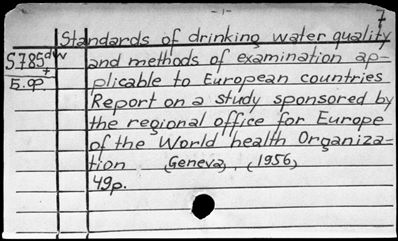 -1-
7
Standards of drinking water quality
S785dw and methods of examination ap-
Б.ф. plicable to European countries
Report on a study sponsored by
the regional office for Europe
of the World health Organiza-
tion (Geneva), (1956)
49p.